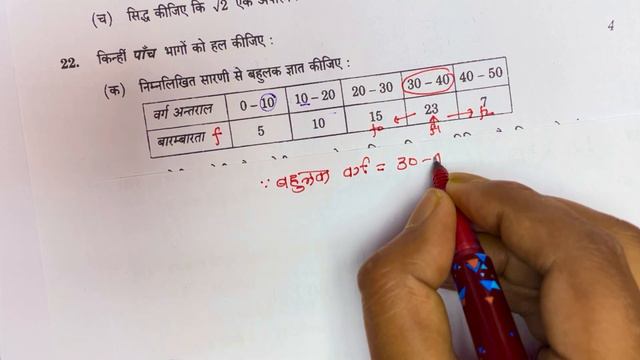 (च) सिद्ध कीजिए कि √2 एक
4
22. किन्हीं पाँच भागों को हल कीजिए :
(क) निम्नलिखित सारणी से बहुलक ज्ञात कीजिए :
वर्ग अन्तराल 0 – 10 10 – 20 20 – 30 30 – 40 40 – 50
बारम्बारता f 5 10 15 23 7
f₀ ← f₁ → f₂
∵ बहुलक वर्ग = 30 –